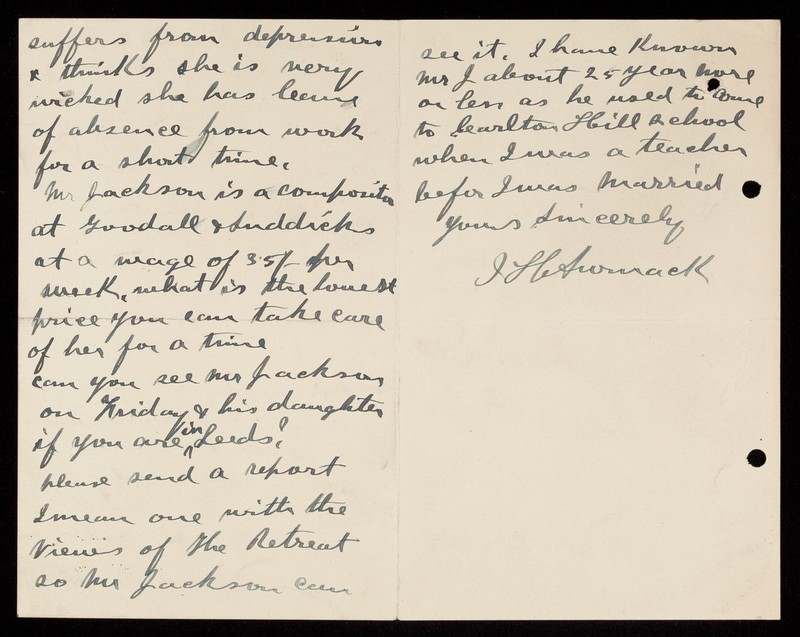 suffers from depression
& thinks she is very
wicked she has leave
of absence from work
for a short time.
Mr Jackson is a compositor
at Goodall & Suddicks
at a wage of 35/ per
week, what is the lowest
price you can take care
of her for a time
can you see Mr Jackson
on Friday & his daughter
if you are in Leeds?
please send a report
I mean one with the
Views of the Retreat
so Mr Jackson can
see it. I have Known
Mr J about 25 year more
or less as he used to come
to Carlton Hill School
when I was a teacher
befor I was Married
yours Sincerely